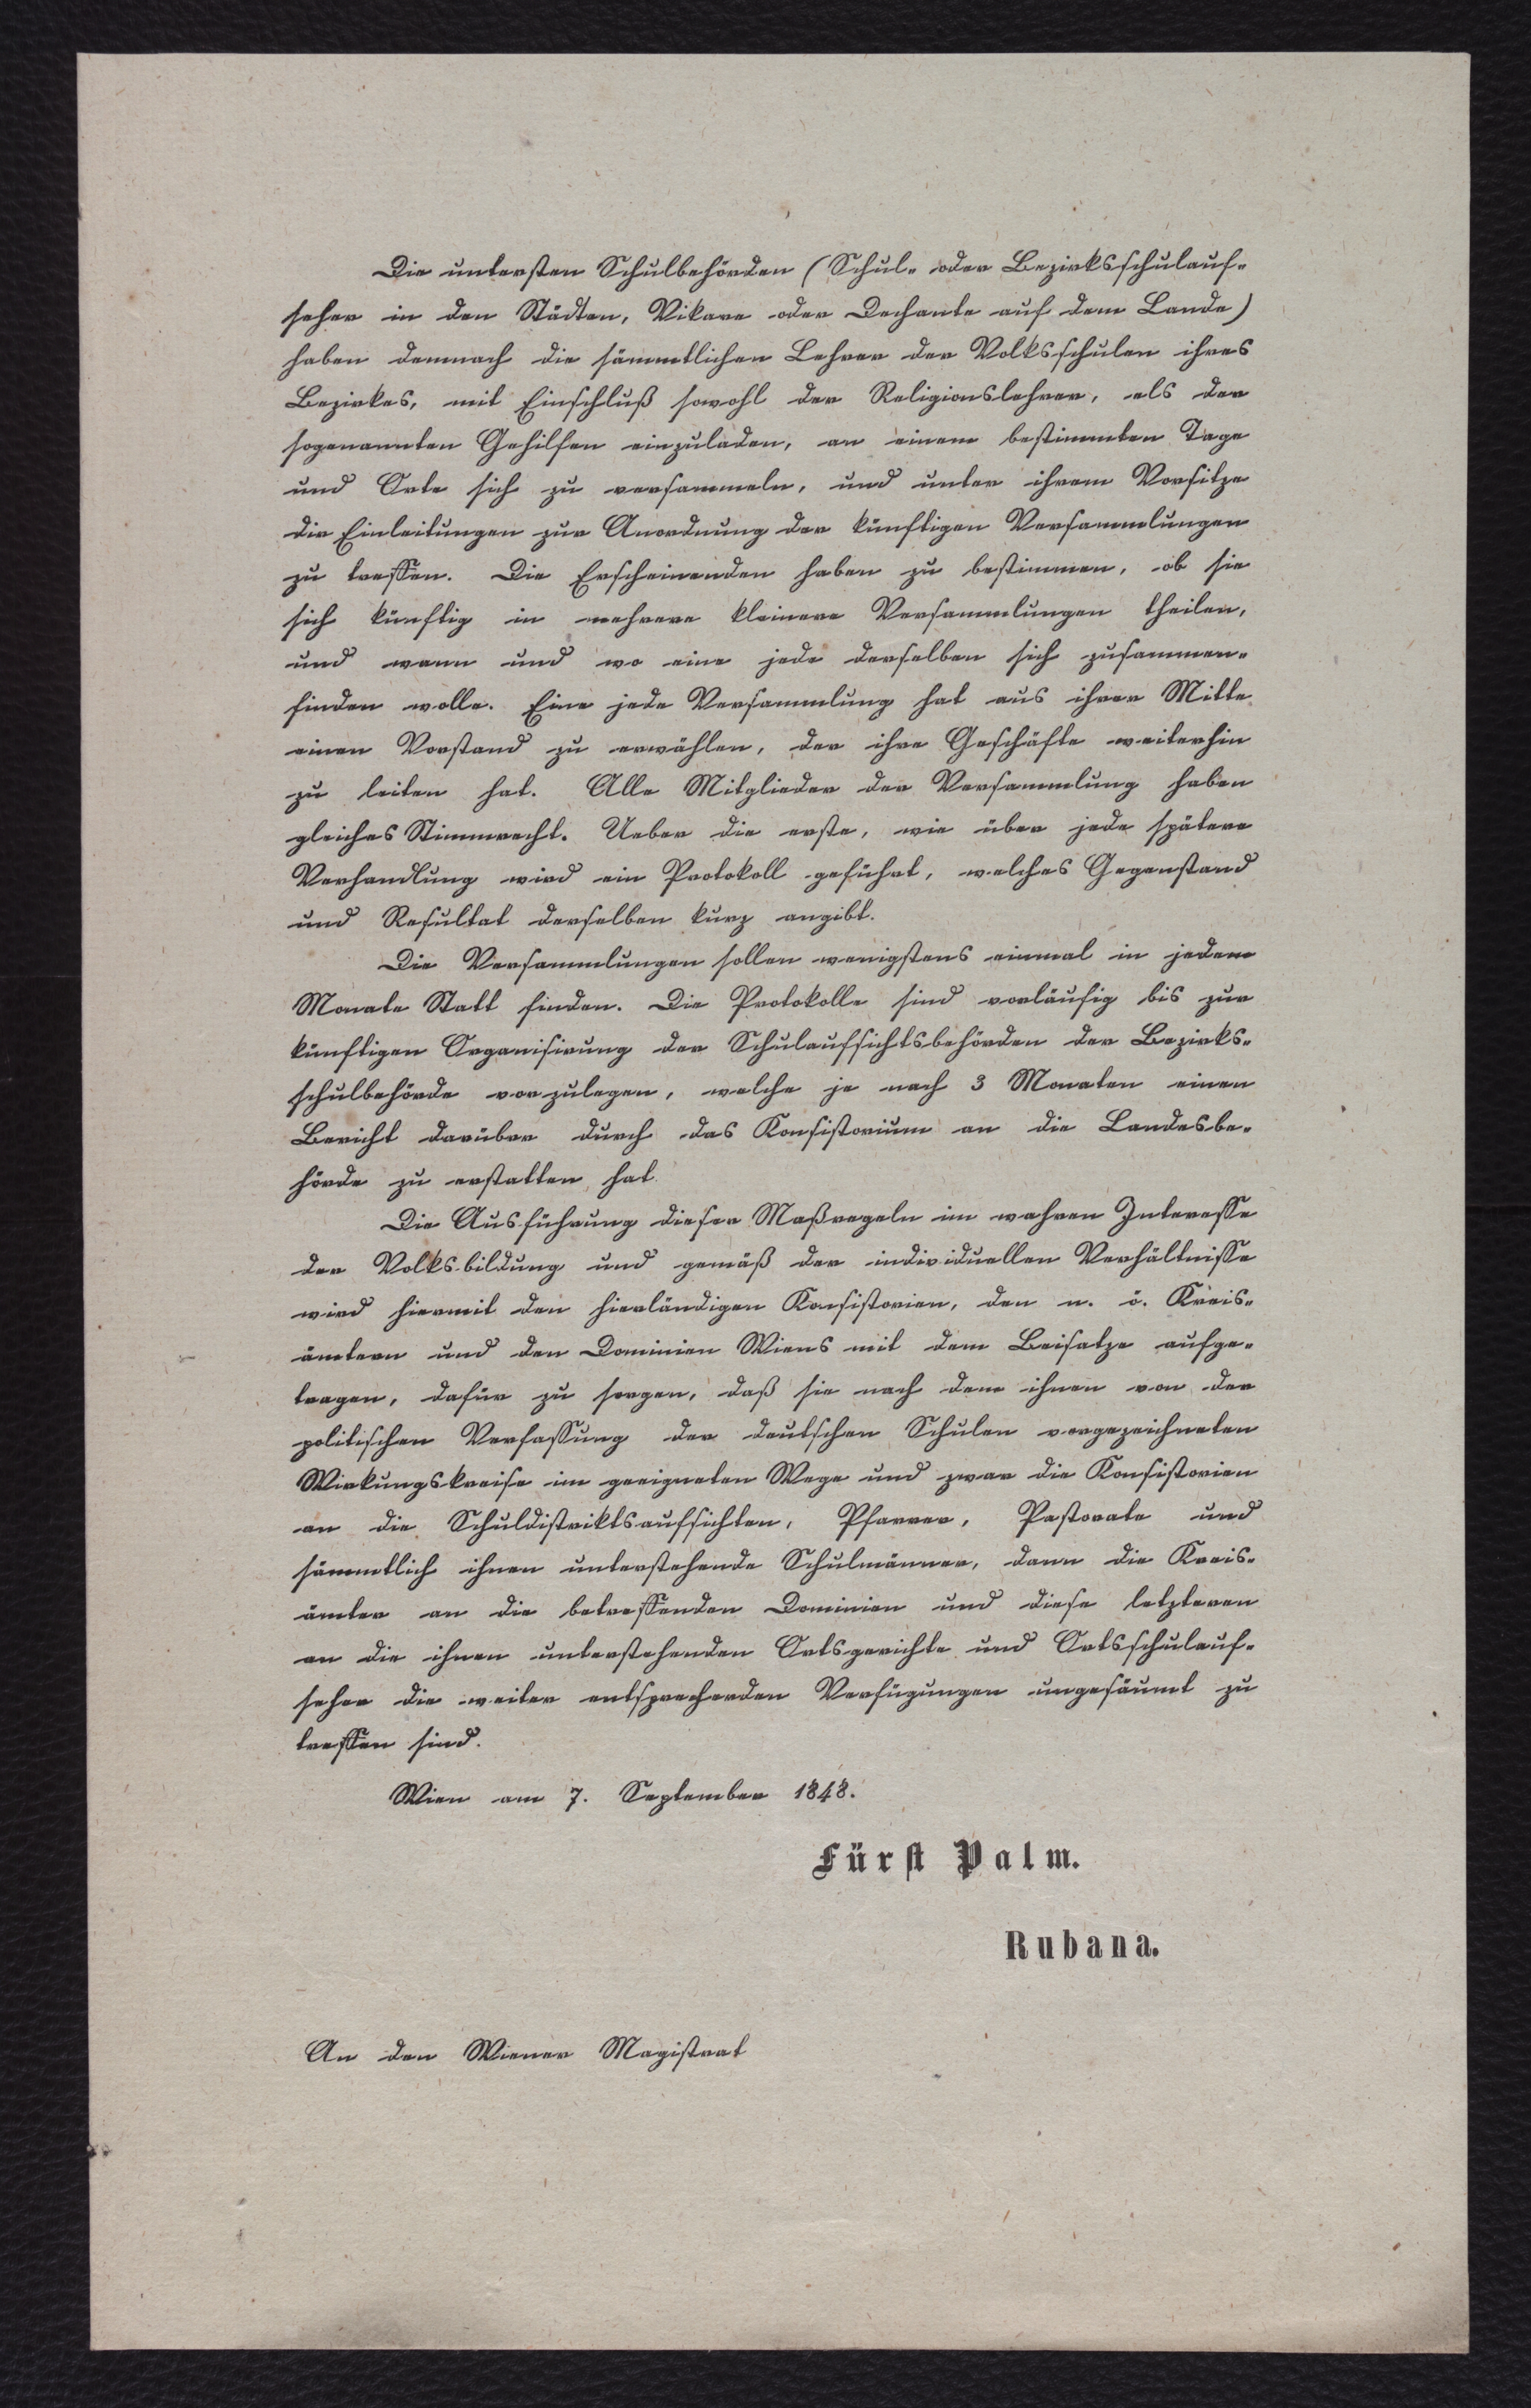 Die untersten Schulbehörden (Schul- oder Bezirksschulauf-
seher in den Städten, Vikare oder Dechante auf dem Lande)
haben demnach die sämmtlichen Lehrer der Volksschulen ihres
Bezirkes, mit Einschluß sowohl der Religionslehrer, als der
sogenannten Gehilfen einzuladen, an einem bestimmten Tage
und Orte sich zu versammeln, und unter ihrem Vorsitze
die Einleitungen zur Anordnung der künftigen Versammlungen
zu treffen. Die Erscheinenden haben zu bestimmen, ob sie
sich künftig in mehrere kleinere Versammlungen theilen,
und wann und wo eine jede derselben sich zusammen-
finden wolle. Eine jede Versammlung hat aus ihrer Mitte
einen Vorstand zu erwählen, der ihre Geschäfte weiterhin
zu leiten hat. Alle Mitglieder der Versammlung haben
gleiches Stimmrecht. Ueber die erste, wie über jede spätere
Verhandlung wird ein Protokoll geführt, welches Gegenstand
und Resultat derselben kurz angibt.
Die Versammlungen sollen wenigstens einmal in jedem
Monate Statt finden. Die Protokolle sind vorläufig bis zur
künftigen Organisirung der Schulaufsichtsbehörden der Bezirks-
schulbehörde vorzulegen, welche je nach 3 Monaten einen
Bericht darüber durch das Konsistorium an die Landesbe-
hörde zu erstatten hat.
Die Ausführung dieser Maßregeln im wahren Interesse
der Volksbildung und gemäß der individuellen Verhältnisse
wird hiermit den hierländigen Konsistorien, den n. ö. Kreis-
ämtern und den Dominien Wiens mit dem Beisatze aufge-
tragen, dafür zu sorgen, daß sie nach dem ihnen von der
politischen Verfassung der deutschen Schulen vorgezeichneten
Wirkungskreise im geeigneten Wege und zwar die Konsistorien
an die Schuldistriktsaufsichten, Pfarrer, Pastorate und
sämmtlich ihnen unterstehende Schulmänner, dann die Kreis-
ämter an die betreffenden Dominien und diese letzteren
an die ihnen unterstehenden Ortsgerichte und Ortsschulauf-
seher die weiter entsprechenden Verfügungen ungesäumt zu
treffen sind.
Wien am 7. September 1848.
Fürst Palm.
Rubana.
An den Wiener Magistrat